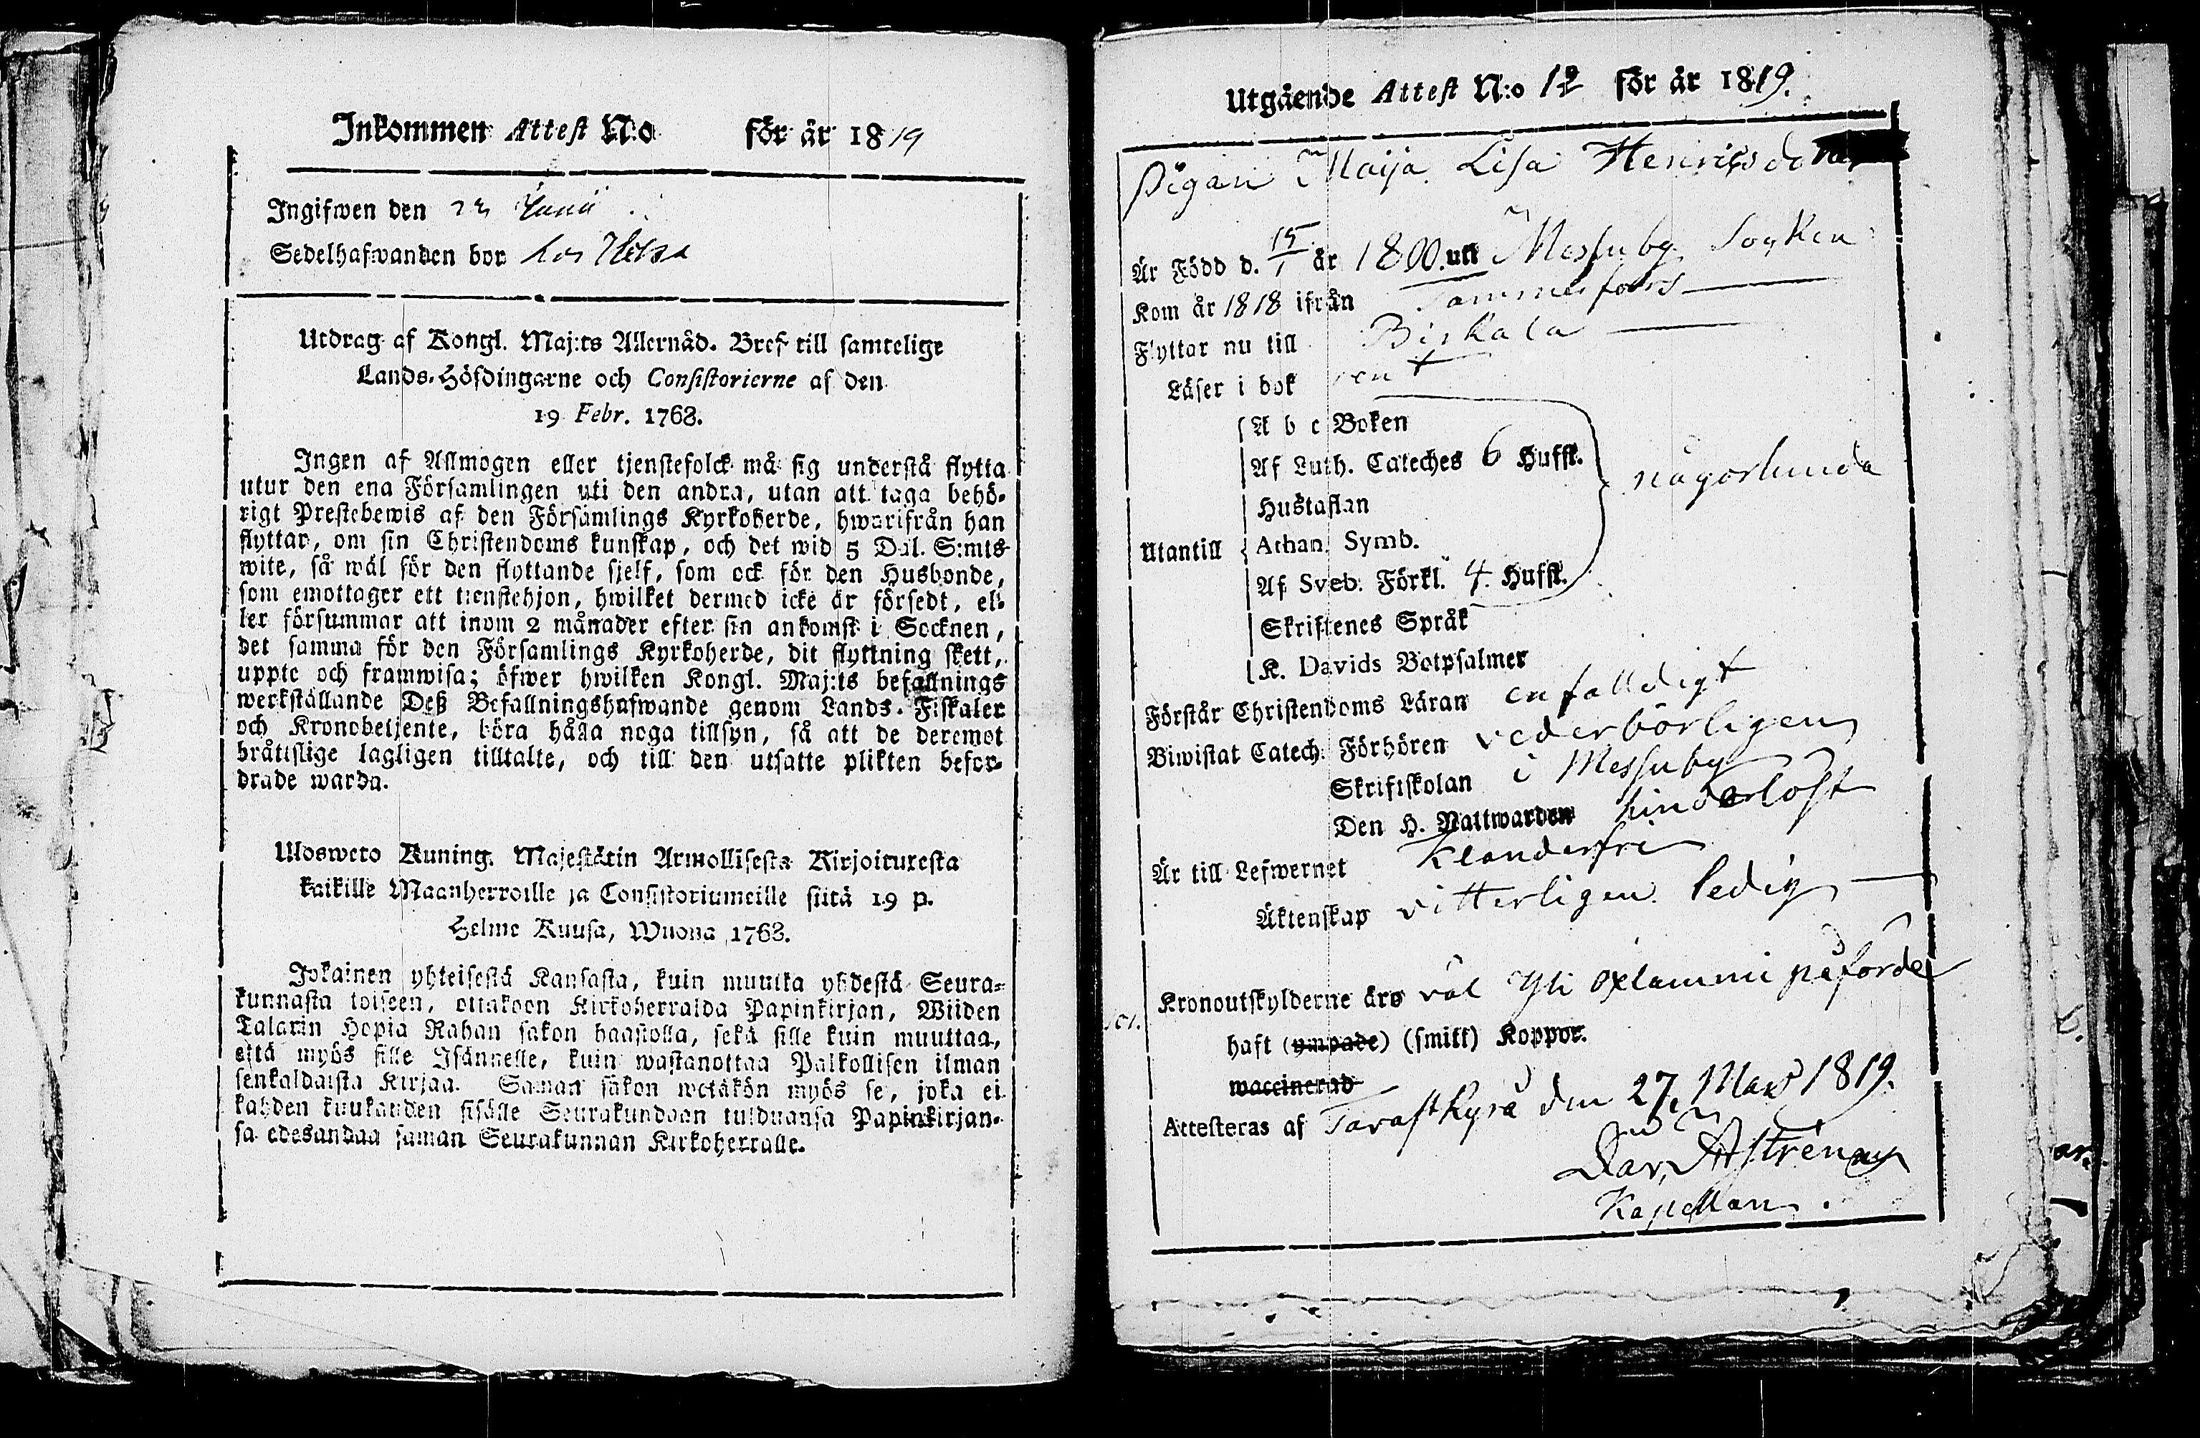 Inkommen Attest N:o för år 1819
Ingifwen den Junii
Sedelhafwanden bor hos
Utdrag af Kongl. Maj:ts Allernåd. Bref till samtelige
Lands-Höfdingarne och Consistorierne af den
19 Febr. 1768.
Ingen af Allmogen eller tjenstefolck må sig understå flytta
utur den ena Församlingen uti den andra, utan att taga behö-
rigt Prestebewis af den Församlings Kyrkoherde, hwarifrån han
flyttar, om sin Christendoms kunskap, och det wid 5 Dal. S:mts
wite, så wäl för den flyttande sjelf, som ock för den Husbonde,
som emottager ett tienstehjon, hwilket dermed icke är försedt, el-
ler försummar att inom 2 månader efter sin ankomst i Socknen,
det samma för den Församlings Kyrkoherde, dit flyttning skett,
uppte och framwisa; öfwer hwilken Kongl. Maj:ts befallnings
werkställande Deß Befallningshafwande genom Lands-Fiskaler
och Kronobetjente, böra hålla noga tillsyn, så att de deremot
bråttslige lagligen tilltalte, och till den utsatte plikten befor-
drade warda.
Ulosweto Kuning. Majestätin Armollisesta Kirjoituresta
kaikille Maanherroille ja Consistoriumeille siitä 19 p.
Helme Kuusa, Wuona 1768.
Jokainen yhteisestä Kansasta, kuin muutta yhdestä Seura-
kunnasta toiseen, ottakoon Kirkoherralda Papinkirjan, Wiiden
Talarin Hopia Rahan sakon haastolla, sekä sille kuin muuttaa,
että myös sille Isännelle, kuin wastanottaa Palkollisen ilman
senkaldaista Kirjaa. Saman sakon wetäkön myös se, joka ei
kahden kuukauden sisälle Seurakundaan tulduansa Papinkirjan-
sa edesandaa saman Seurakunnan Kirkoherralle.
Utgående Attest N:o 12 för år 1819.
Pigan Maija Lisa Henricsdotter
Är Född d. 15/1 år 1800. utt Messuby Soyken
Kom år 1818 ifrån Tammerfors
Flyttar nu till Birkala
Läser i bok rent
A b c Boken
Af Luth. Cateches 6 Huffst.
någorlunda
Hustaflan
Utantill
Athan. Symb.
Af Sveb. Förkl. 4. Hufst.
Skriftenes Språk
K. Davids Botpsalmer
Förstår Christendoms Läran enfalldigt
Biwistat Catech. Förhören vederbörligen
Skriftskolan i Messuby
Den H. Nattwarden hinderlöst
Är till Lefwernet Klanderfri
Äktenskap vitterligen ledig
Kronoutskylderne äro väl Yli Oxlammi påförde
haft (ympade) (smitt) Koppor.
waccinerad
Attesteras af Tarastkyrå den 27 Mars 1819.
Dav. Aströn
Kapellan.